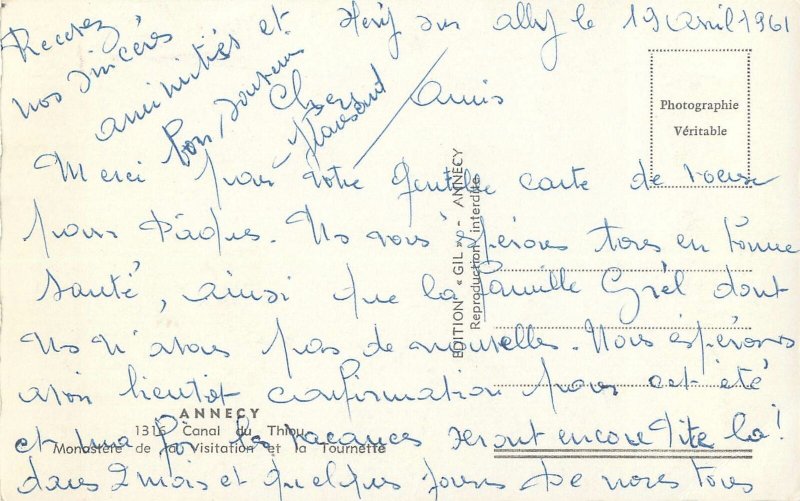 Héry sur Alby le 19 avril 1961
Chers Amis
Merci pour votre gentille carte de voeux
pour Pâques. Ns vous espérons tous en bonne
santé, ainsi que la famille Grél dont
Ns n'avons pas de nouvelles. Nous espérons
avoir bientôt confirmation pour cet été
et ma foi les vacances seront encore vite là!
dans 2 mois et quelques jours De nous tous
Recevez
nos sincères
amimitiés et
bon souvenir
Photographie
Véritable
EDITION « GIL » - ANNECY
Reproduction interdite
ANNECY
1316 Canal du Thiou
Monastère de la Visitation et la Tournette